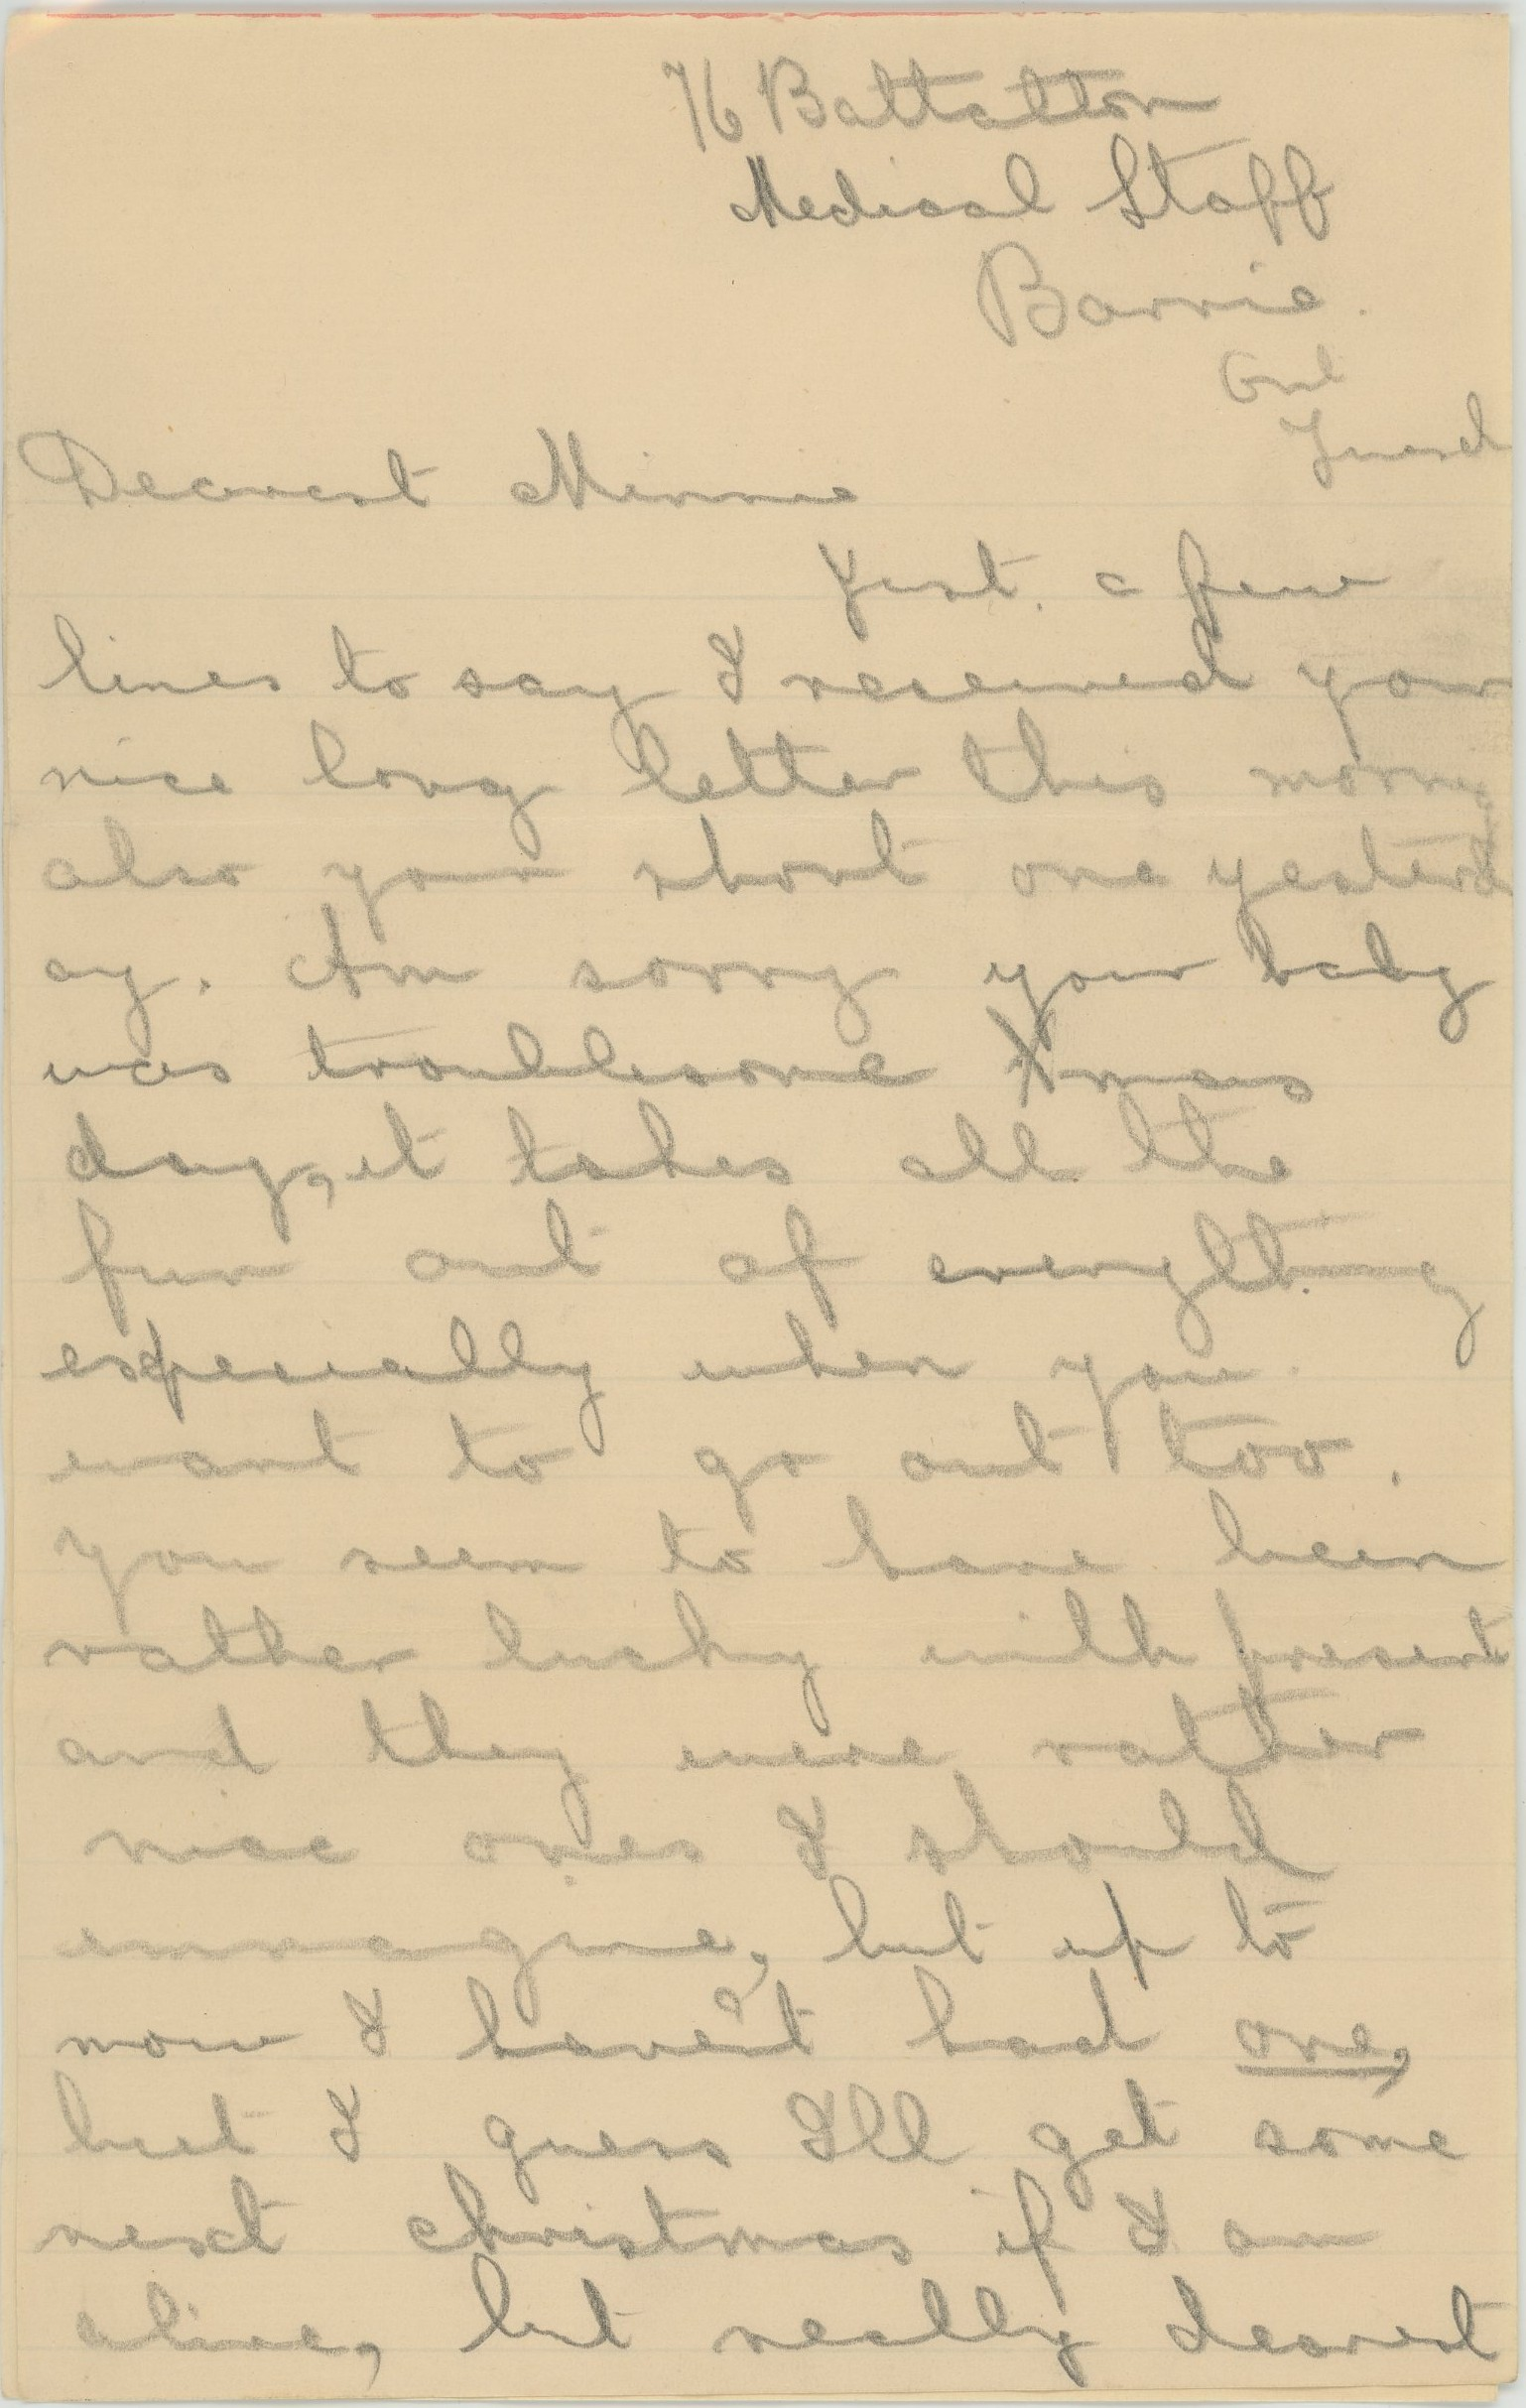 76 Battalion
Medical Staff
Barrie.
Ont
Tuesd
Dearest Minnie
Just. a few
lines to say I received your
nice long letter this morning
also your short one yesterd
ay. Am sorry your baby
was troublesome Xmas
day, it takes all the
fun out of everything
especially when you.
want to go out too.
You seem to have been
rather lucky with present
and they were rather
nice ones I should
immagine, but up to
now I have'nt had one,
but I guess I'll get some
next christmas if I am
alive, but really dearest